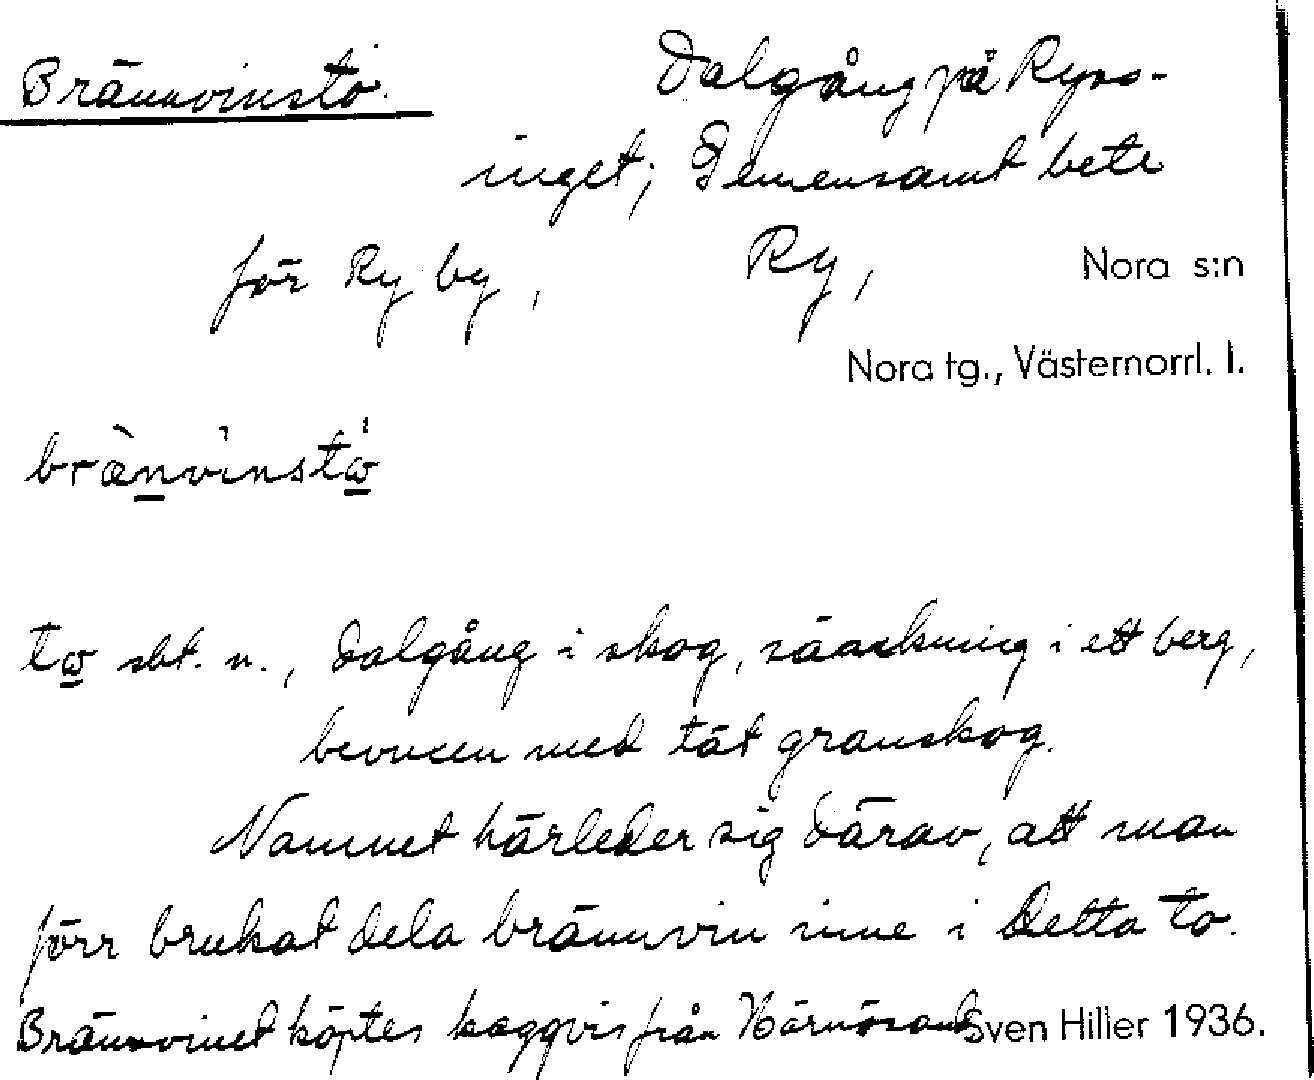 Brännvinsto. Dalgång på Ryss-
inget; Gemensamt bete
för Ry by, Ry, Nora s:n
Nora tg., Västernorrl. l.
brä̀nvinstω
tω sbt. n., dalgång i skog, säsckning i ett berg,
bevuxen med tät granskog.
Namnet härleder sig därav, att man
förr brukat dela brännvin inne i detta to.
Brännvinet köptes kaggvis från Härnösand
Sven Hiller 1936.